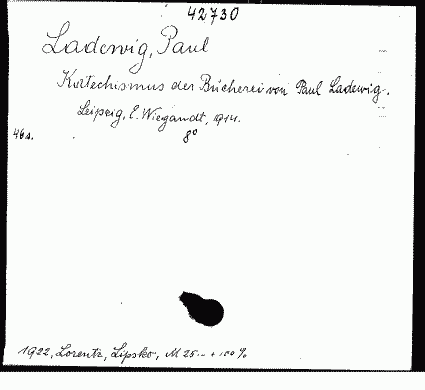 42730
Ladewig, Paul
Katechismus der Bücherei von Paul Ladewig.
Leipzig, E. Wiegandt, 1914.
46 s. 8°
1922, Lorentz, Lipsko, M 25.- + 100%